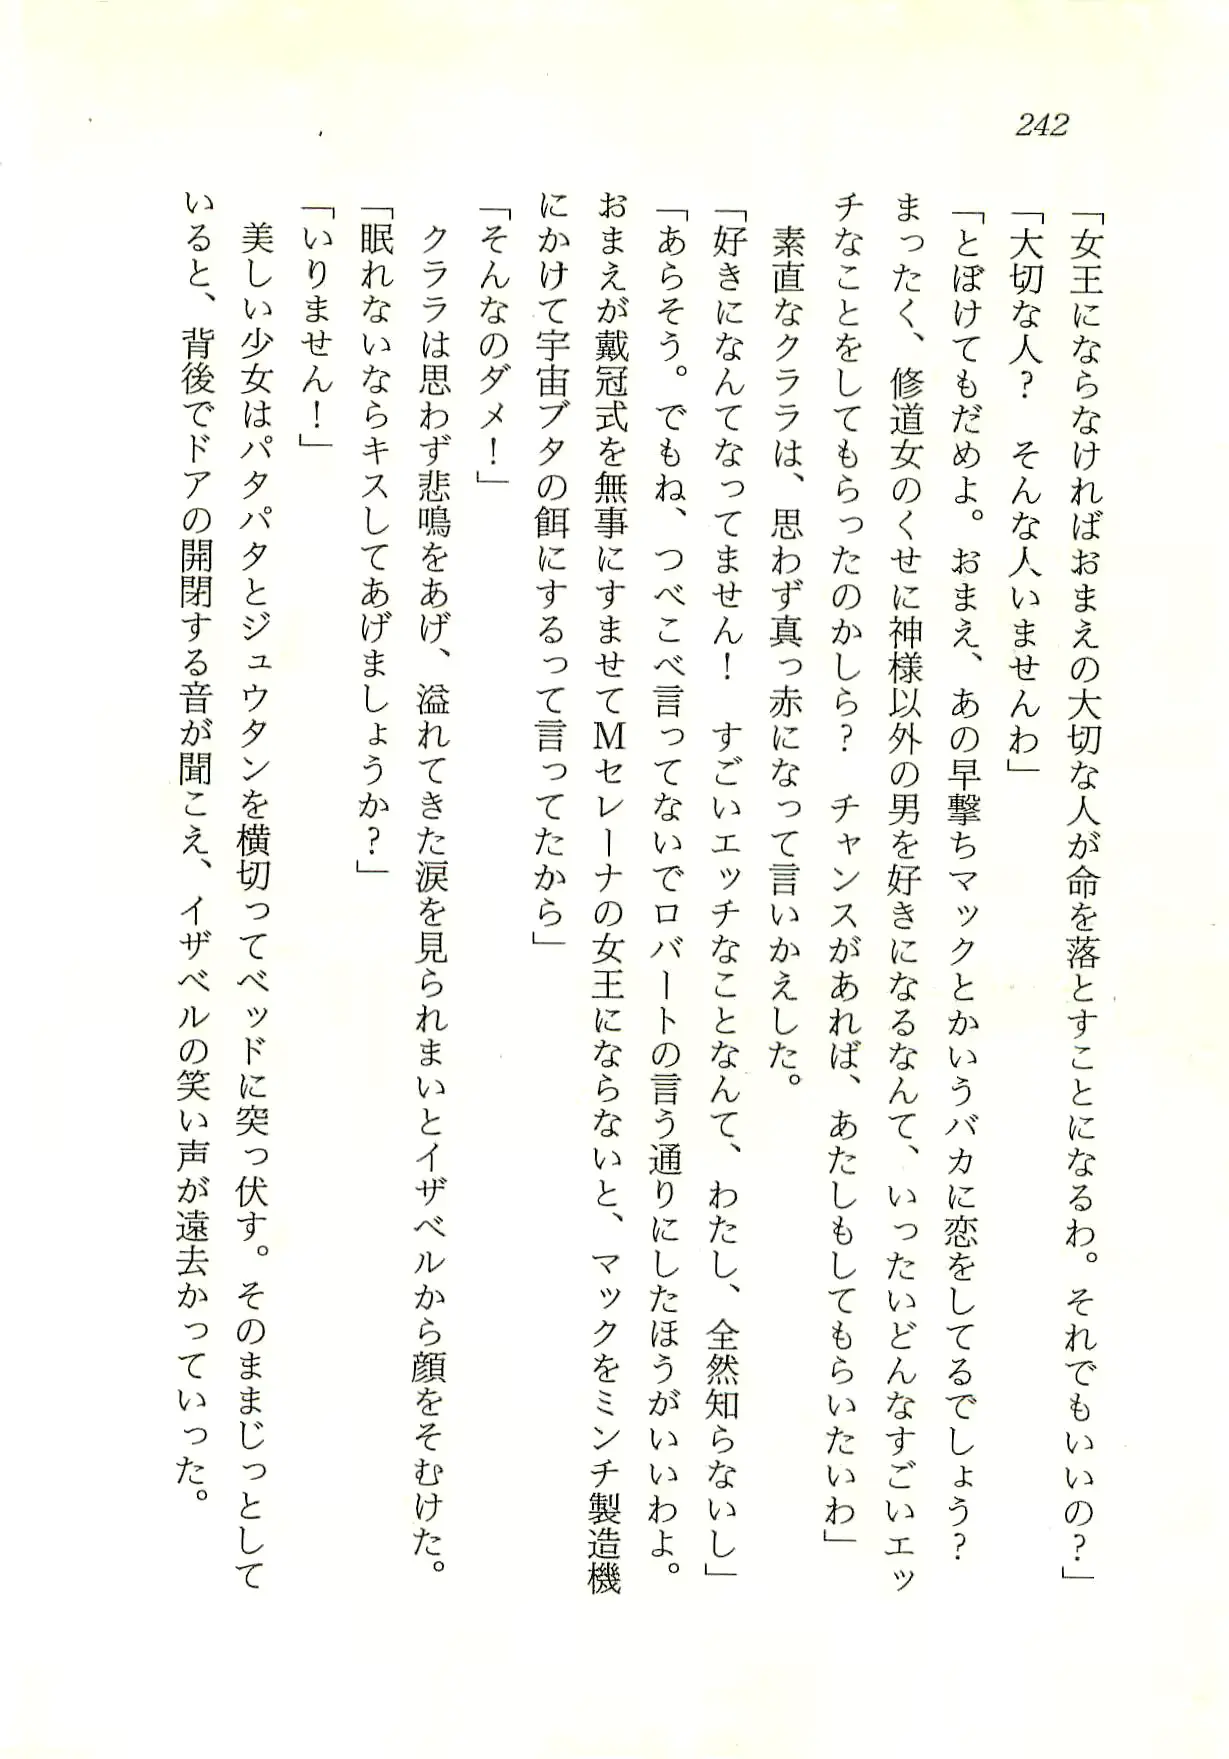 242
「女王にならなければおまえの大切な人が命を落とすことになるわ。それでもいいの？」
「大切な人？　そんな人いませんわ」
「とぼけてもだめよ。おまえ、あの早撃ちマックとかいうバカに恋をしてるでしょう？
まったく、修道女のくせに神様以外の男を好きになるなんて、いったいどんなすごいエッ
チなことをしてもらったのかしら？　チャンスがあれば、あたしもしてもらいたいわ」
　素直なクララは、思わず真っ赤になって言いかえした。
「好きになんてなってません！　すごいエッチなことなんて、わたし、全然知らないし」
「あらそう。でもね、つべこべ言ってないでロバートの言う通りにしたほうがいいわよ。
おまえが戴冠式を無事にすませてＭセレーナの女王にならないと、マックをミンチ製造機
にかけて宇宙ブタの餌にするって言ってたから」
「そんなのダメ！」
　クララは思わず悲鳴をあげ、溢れてきた涙を見られまいとイザベルから顔をそむけた。
「眠れないならキスしてあげましょうか？」
「いりません！」
　美しい少女はパタパタとジュウタンを横切ってベッドに突っ伏す。そのままじっとして
いると、背後でドアの開閉する音が聞こえ、イザベルの笑い声が遠去かっていった。